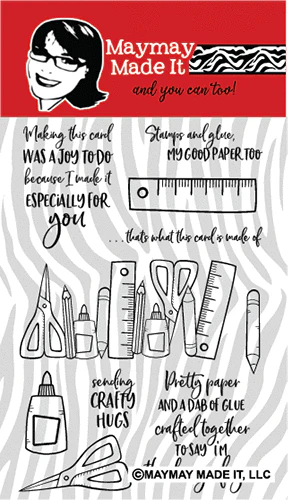 Maymay
Made It
and you can too!
Making this card
WAS A JOY TO DO
because I made it
ESPECIALLY FOR
you
Stamps and glue,
MY GOOD PAPER TOO
. . . thats what this card is made of
sending
CRAFTY
HUGS
Pretty paper
AND A DAB OF GLUE
crafted together
TO SAY I'M
©MAYMAY MADE IT, LLC